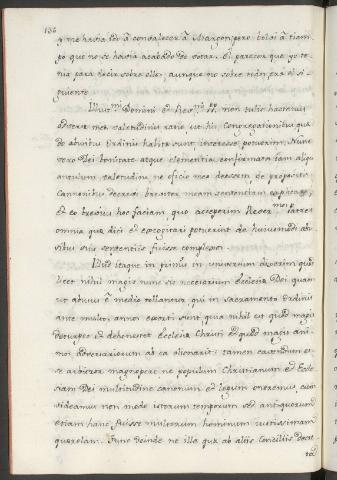 136
y me havia ido a convalecer a Marzon; pero bolvi a tiem-
po que no se havia acabado de votar. El parecer que yo te-
nia para decir sobre ello, aunque no sobre tian, era el si-
guiente.
Illust.mi Domini et Rev.mi PP. non tulit hactenus
adversa mea valetudinis ratio, ut his Congregationibus quæ
de abusibus Ordinis habitæ sunt, interesse potuerim. Nunc
vero Dei bonitate atque clementia confirmata iam aliqu-
antulum valetudine, ne oficio meo deessem, de propositis
Canonibus decrevi breviter meam sententiam explicare,
et eo brevius hoc faciam, quo acceperim Rever.mos patres
omnia quæ dici et excogitari poterint de huiusmodi abu-
sibus suis sententiis fuisse complexos.
Illud itaque in primis in universum dixerim, quod
licet nihil magis nunc sit necesarium Ecclesiæ Dei quam
ut abusus e medio tollantur, qui in sacramento Ordinis
ante multos annos exorti sunt, qua nihil est quod magis
deturpet et dehonestet Ecclesiam Christi et quod magis ani-
mos adversariorum ab ea alienarit: tamen cavendum es-
se arbitror magnopere ne populum Christianum et Eccle-
siam Dei multitudine canonum et legum oneremus, cum
videamus non modo istorum temporum sed antiquorum
etiam hanc fuisse multorum hominum iustissimam
querelam. Tunc deinde ne illa quæ ab aliis Conciliis decre-
ta